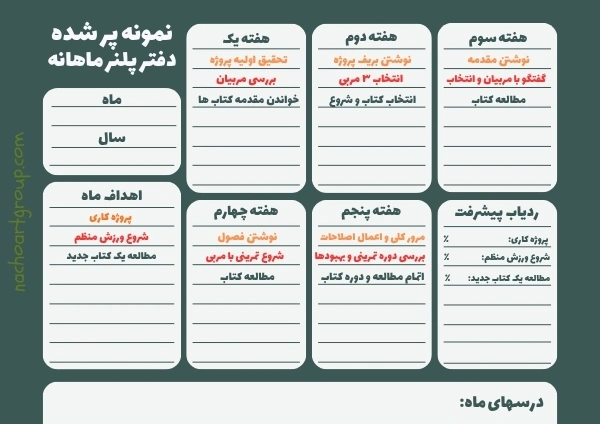 نمونه پر شده
دفتر پلنر ماهانه
ماه
سال
اهداف ماه
پروژه کاری
شروع ورزش منظم
مطالعه یک کتاب جدید
هفته یک
تحقیق اولیه پروژه
بررسی مربیان
خواندن مقدمه کتاب ها
هفته دوم
نوشتن بریف پروژه
انتخاب ۳ مربی
انتخاب کتاب و شروع
هفته سوم
نوشتن مقدمه
گفتگو با مربیان و انتخاب
مطالعه کتاب
هفته چهارم
نوشتن فصول
شروع تمرینی با مربی
مطالعه کتاب
هفته پنجم
مرور کلی و اعمال اصلاحات
بررسی دوره تمرینی و بهبودها
اتمام مطالعه و دوره کتاب
ردیاب پیشرفت
پروژه کاری: ٪
شروع ورزش منظم: ٪
مطالعه یک کتاب جدید: ٪
درسهای ماه:
nachoartgroup.com